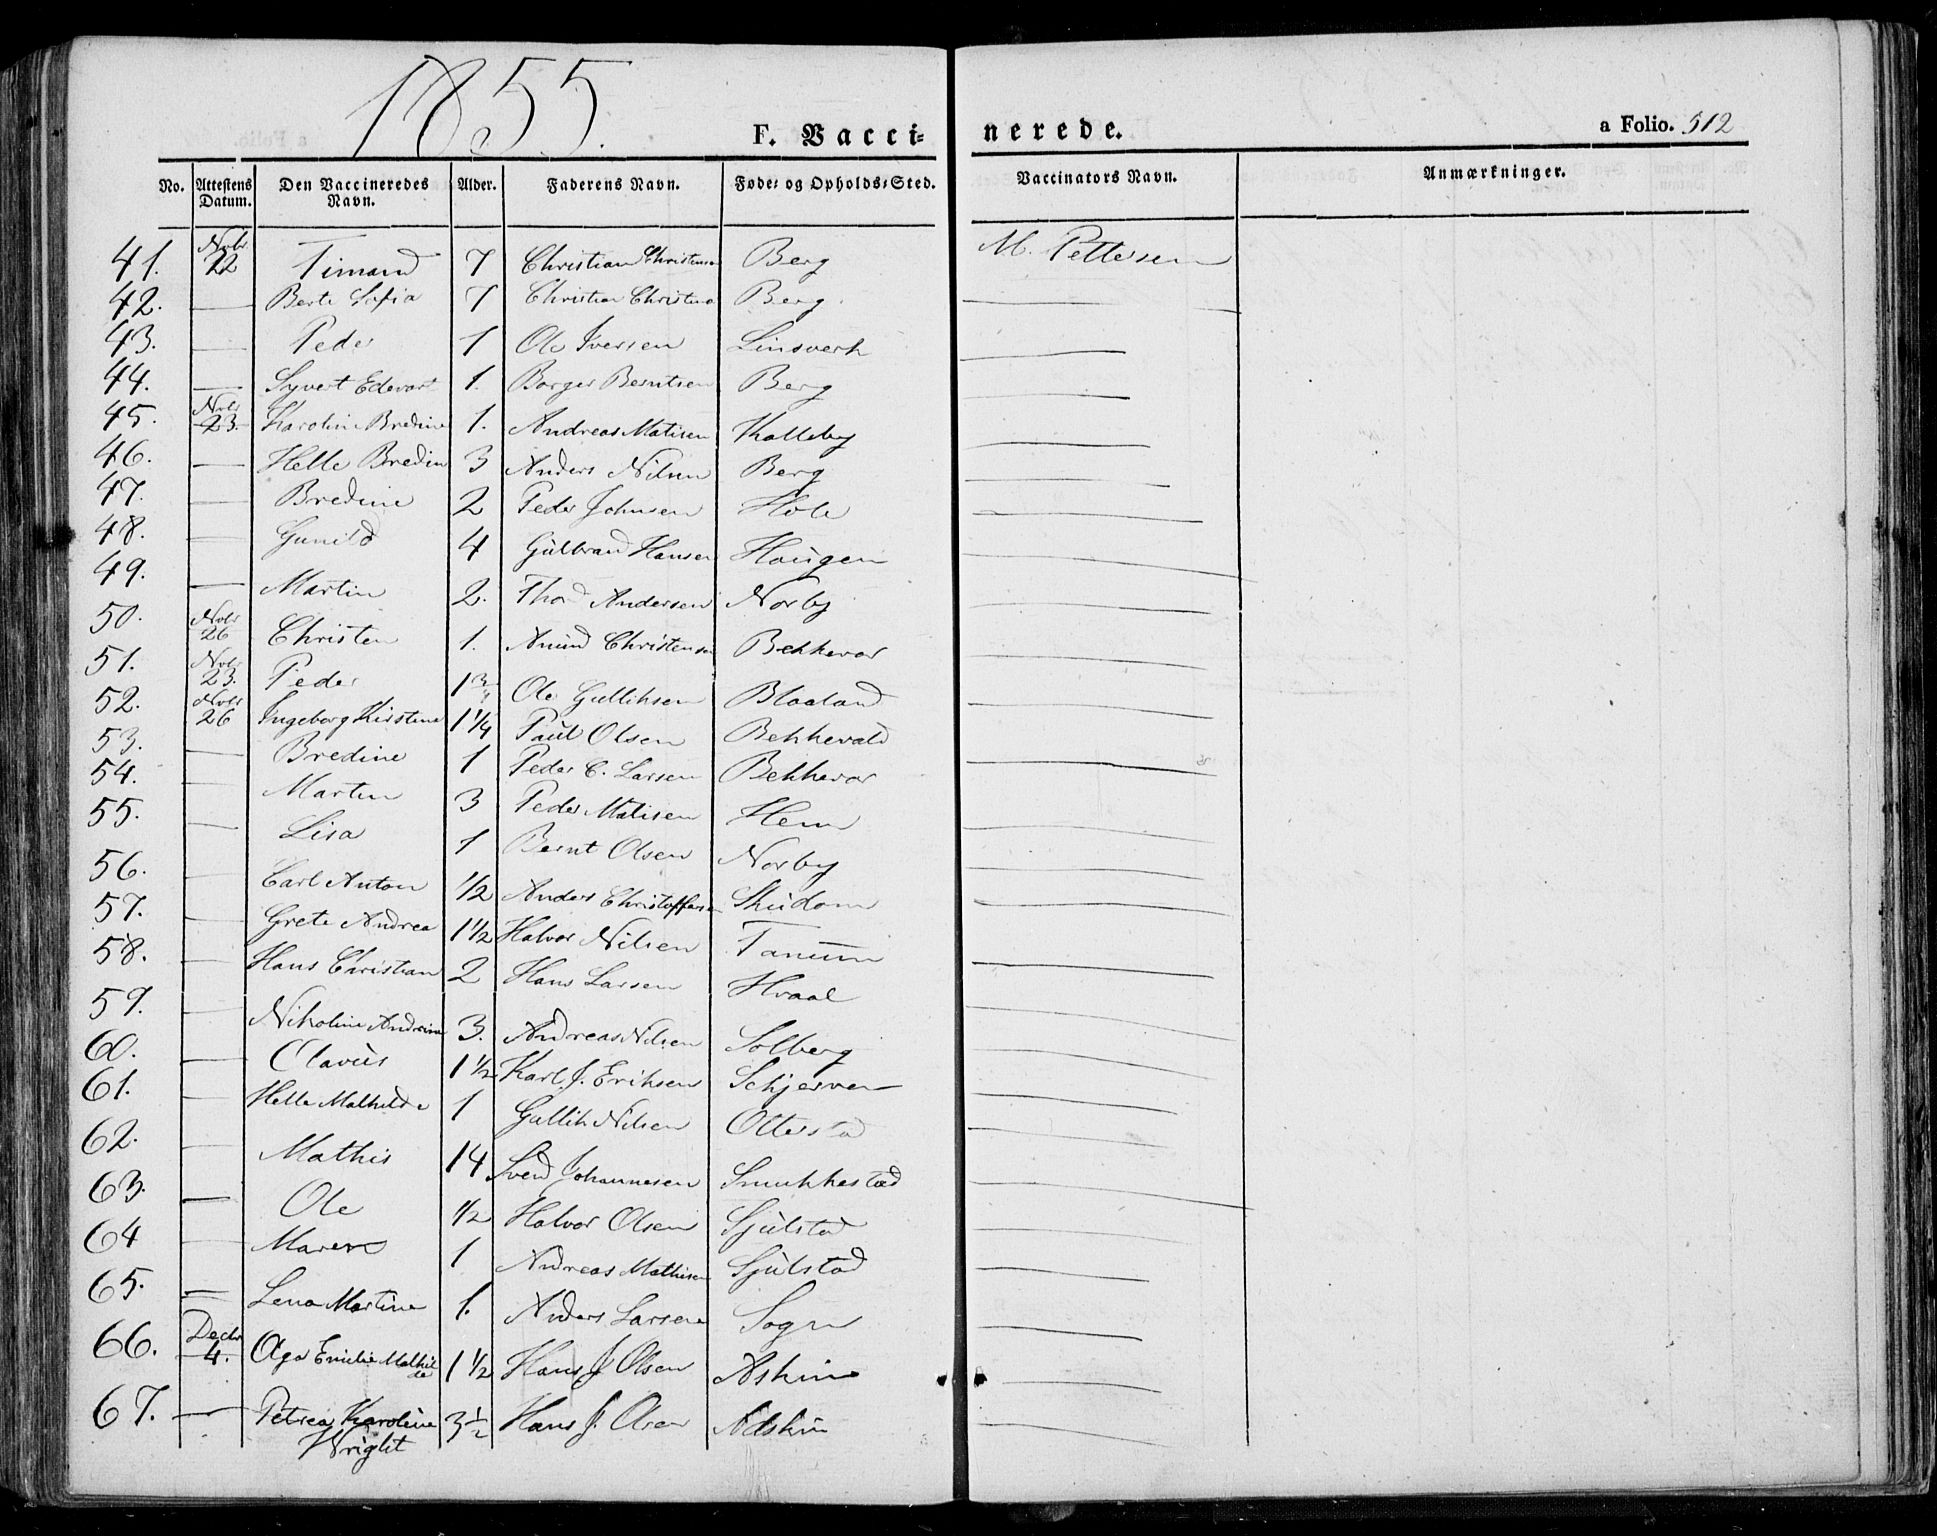 1855.
F. Vacci-
nerede.
a Folio. 512
No. Attestens Datum. Den Vaccineredes Navn. Alder. Faderens Navn. Føde- og Opholds-Sted. Vaccinators Navn. Anmærkninger.
41. Novbr 22 Timand 7 Christian Christensen Berg M. Pettersen
42. — Berte Sofia 7 Christian Christens Berg —
43. — Peder 1 Ole Iversen Linsverk —
44. — Syvert Edevart 1. Borger Berntsen Berg —
45. Novbr 23. Karoline Bredine 1. Andreas Matisen Kalleby —
46. — Helle Bredin 3 Anders Nilsen Berg —
47. — Bredine 2 Peder Johnsen Hole —
48. — Gunild 4 Gulbrand Hansen Hougen —
49. — Martin 2. Thord Andersen Norby —
50. Novbr 26 Christen 1. Amund Christensen Bekkevar —
51. Novbr 23. Peder 1 3/4 Ole Gulliksen Blaaland —
52. Novbr 26 Ingeborg Kirstine 1 1/4 Paul Olsen Bekkevald —
53. — Bredine 1 Peder C. Larsen Bekkevar —
54. — Martin 3 Peder Matisen Hem —
55. — Lisa 1 Bernt Olsen Norby —
56. — Carl Anton 1/2 Anders Christoffersen Skudom —
57. — Grete Andrea 1 1/2 Halvor Nilsen Tanum —
58. — Hans Christian 2 Hans Larsen Hvaal —
59. — Nikoline Andrine 3. Andreas Nilsen Solberg —
60. — Olavus 1 1/2 Karl J. Eriksen Schjerven —
61. — Helle Mathilde 1 Gullik Nilsen Ottersta —
62. — Mathis 14 Svend Johannesen Smukkestad —
63. — Ole 1/2 Halvor Olsen Sjulstad —
64 — Maren 1 Andreas Mathisen Sjulstad —
65. — Lena Martine 1. Anders Larsen Sogn —
66. Decbr 4. Aga Emilie Mathilde 1 1/2 Hans J Olsen Askim —
67. — Petrea Karoline Wright 3 1/2 Hans J. Olsen Adskim —